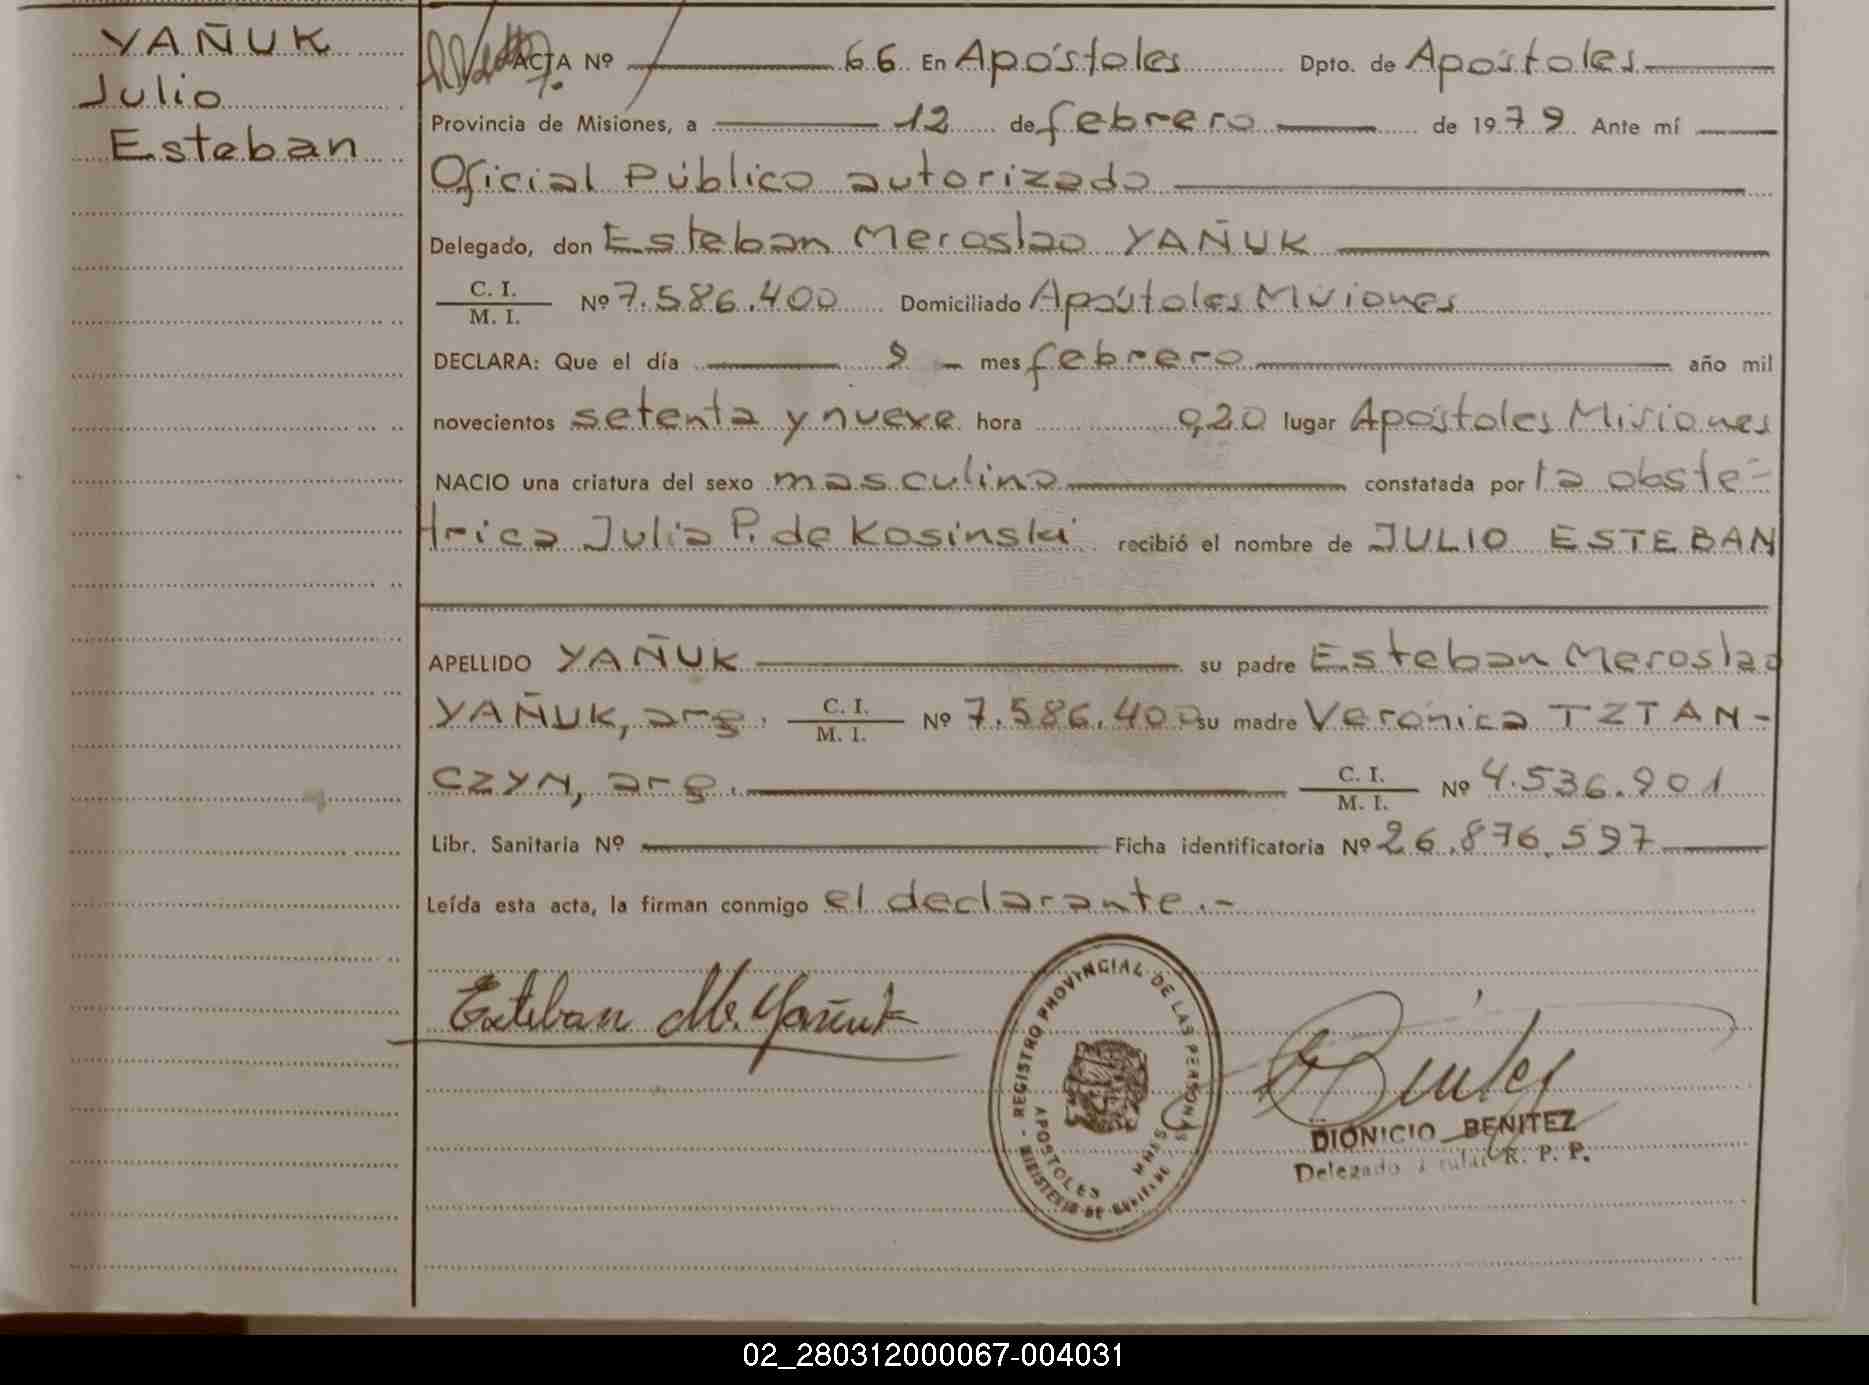 YAÑUK
Julio
Esteban
ACTA Nº 66 En Apóstoles Dpto. de Apóstoles
Provincia de Misiones, a 12 de febrero de 1979 Ante mí
Oficial Público autorizado
Delegado, don Esteban Meroslao YAÑUK
C. I.
M. I. Nº 7.586.400 Domiciliado Apóstoles Misiones
DECLARA: Que el día 9 mes febrero año mil
novecientos setenta y nueve hora 9,20 lugar Apóstoles Misiones
NACIO una criatura del sexo masculino constatada por la obste-
trica Julia P. de Kosinski recibió el nombre de JULIO ESTEBAN
APELLIDO YAÑUK su padre Esteban Meroslao
YAÑUK, arg. C. I. M. I. Nº 7.586.400 su madre Verónica TZTAN-
CZYN, arg. C. I. M. I. Nº 4.536.901
Libr. Sanitaria Nº Ficha identificatoria Nº 26.876.597
Leída esta acta, la firman conmigo el declarante.-
Esteban M. Yañuk
REGISTRO PROVINCIAL DE LAS PERSONAS
APOSTOLES MNES
MINISTERIO DE
DIONICIO BENITEZ
Delegado Titular R. P. P.
02_280312000067-004031